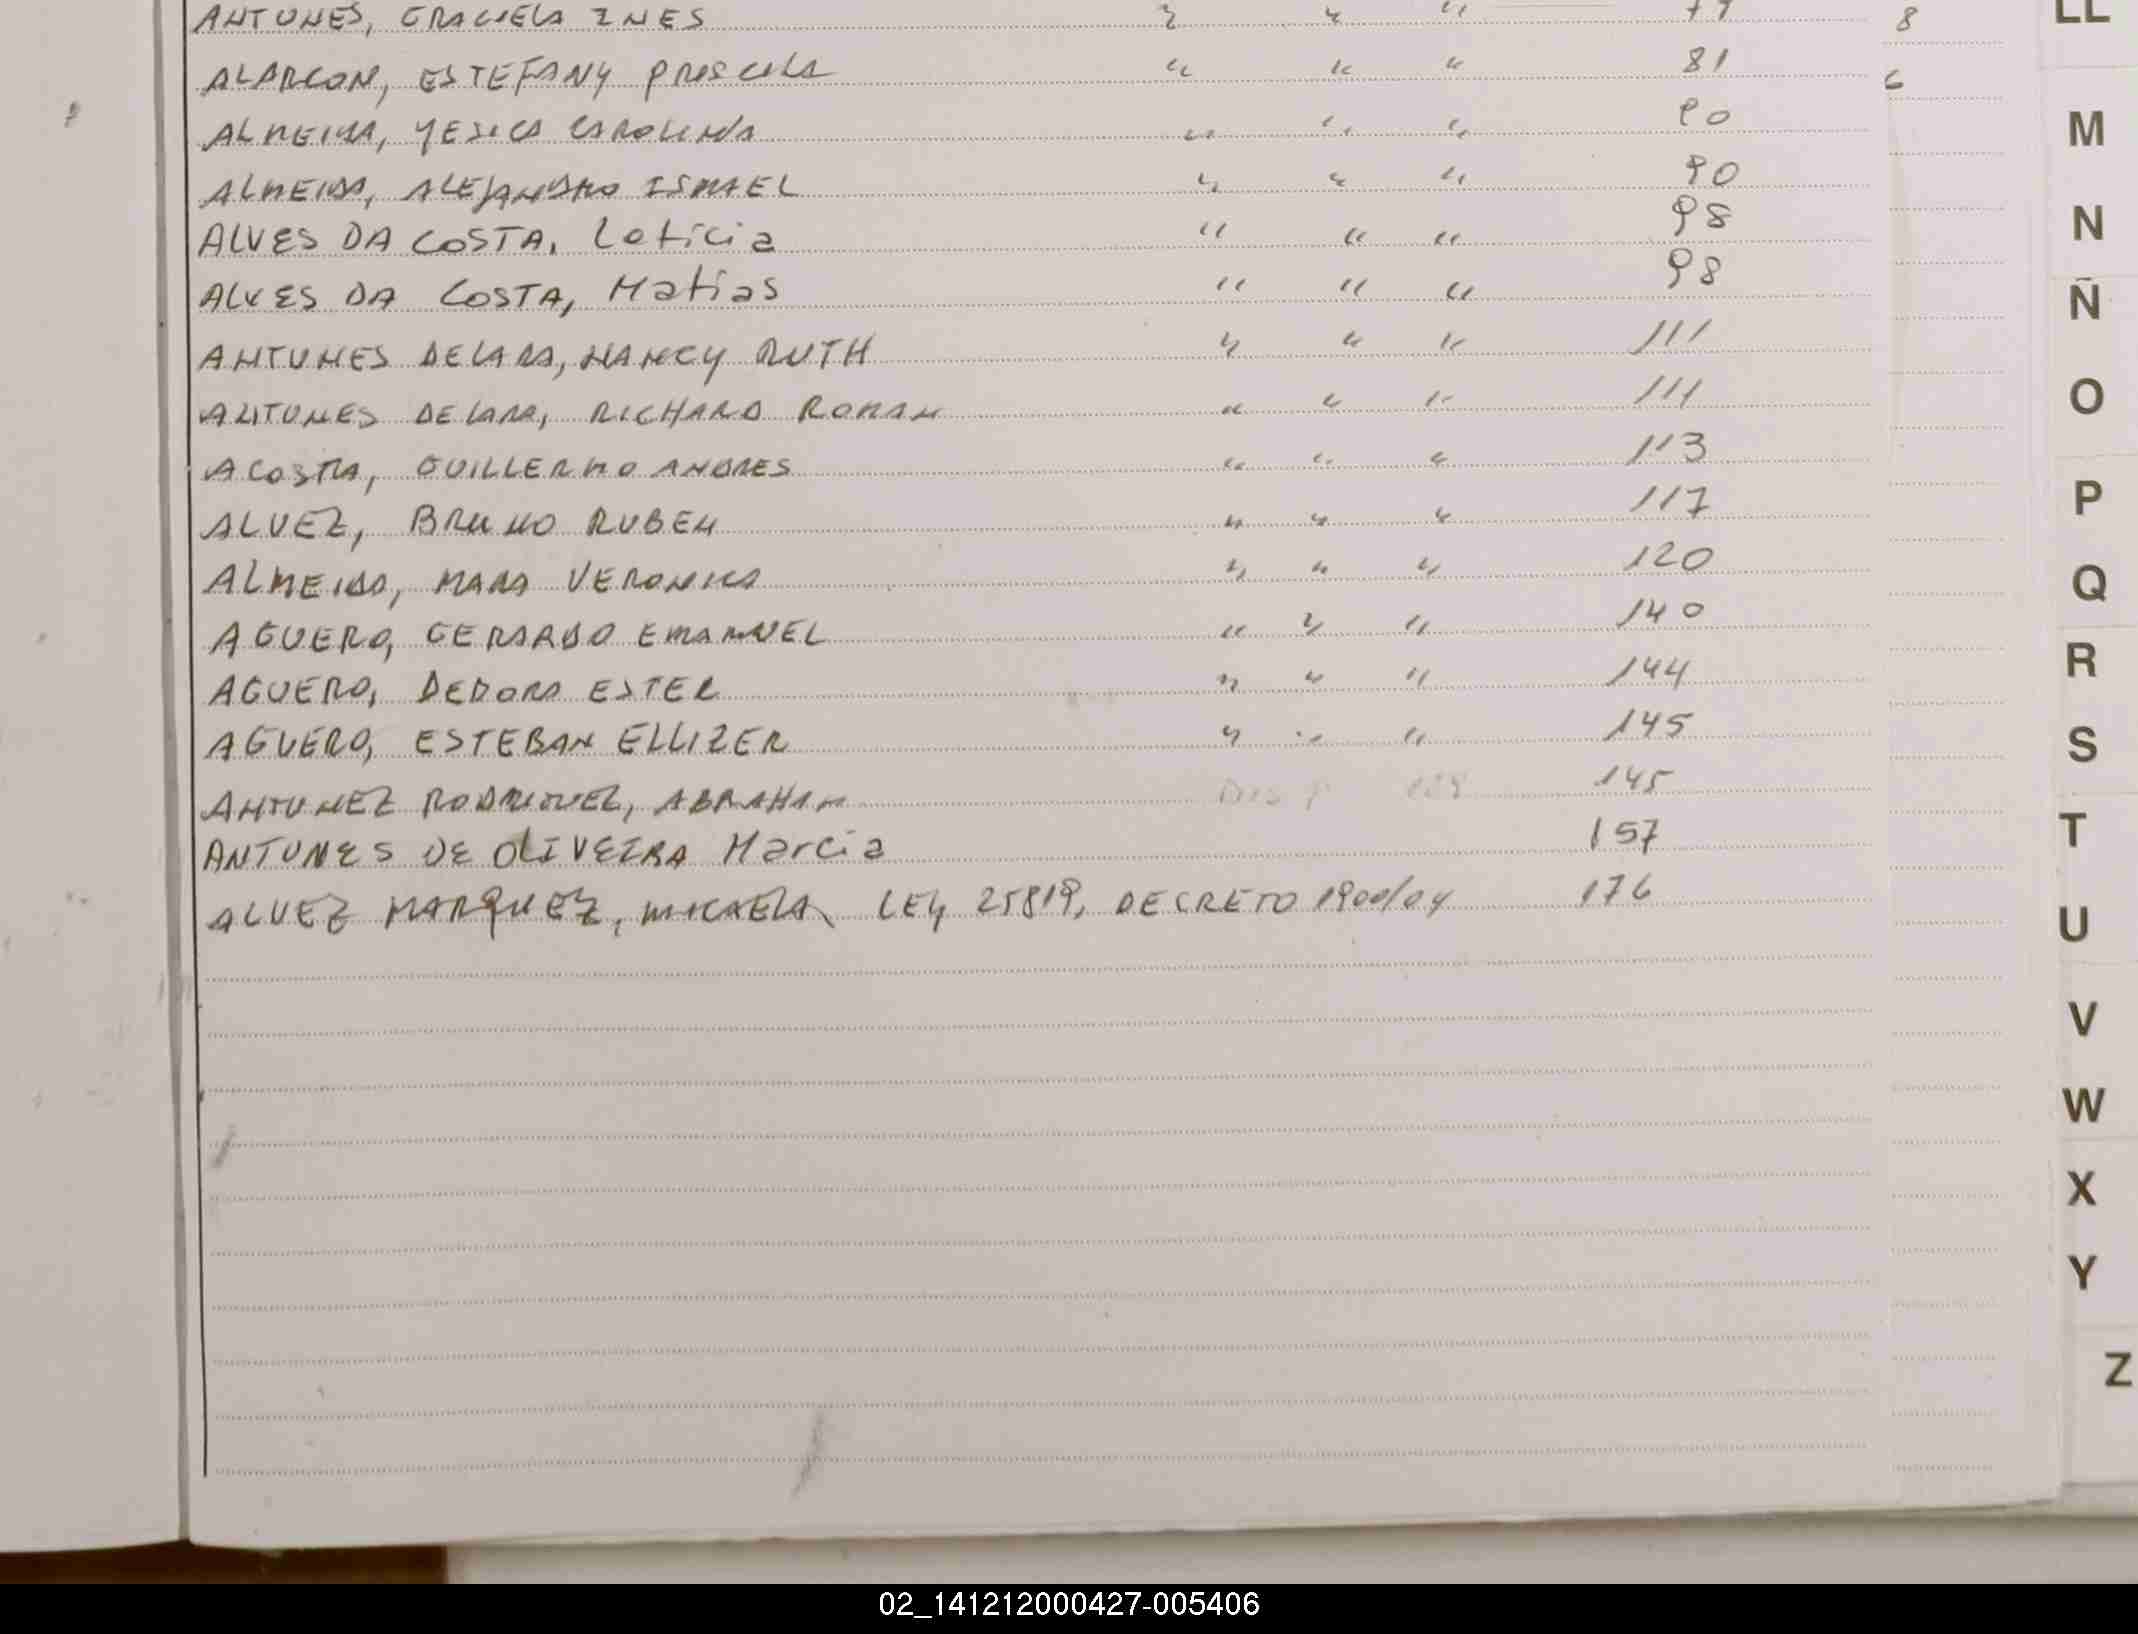 ANTUNES, GRACIELA INES " " " 77 8
ALARCON, ESTEFANY PRISCILA " " " 81 6
ALMEIDA, YESICA CAROLINA " " " 90
ALMEIDA, ALEJANDRO ISMAEL " " " 90
ALVES DA COSTA, Leticia " " " 98
ALVES DA COSTA, Matias " " " 98
ANTUNES DELARA, NANCY RUTH " " " 111
ANTUNES DELARA, RICHARD ROMAN " " " 111
ACOSTA, GUILLERMO ANDRES " " " 113
ALVEZ, BRUNO RUBEN " " " 117
ALMEIDA, MARA VERONICA " " " 120
AGUERO, GERARDO EMANUEL " " " 140
AGUERO, DEBORA ESTER " " " 144
AGUERO, ESTEBAN ELLIZER " " " 145
ANTUNEZ RODRIGUEZ, ABRAHAM 145
ANTUNES DE OLIVEIRA Marcia 157
ALVEZ MARQUEZ, MICAELA LEY 25819, DECRETO 1900/04 176
LL
M
N
Ñ
O
P
Q
R
S
T
U
V
W
X
Y
Z
02_141212000427-005406